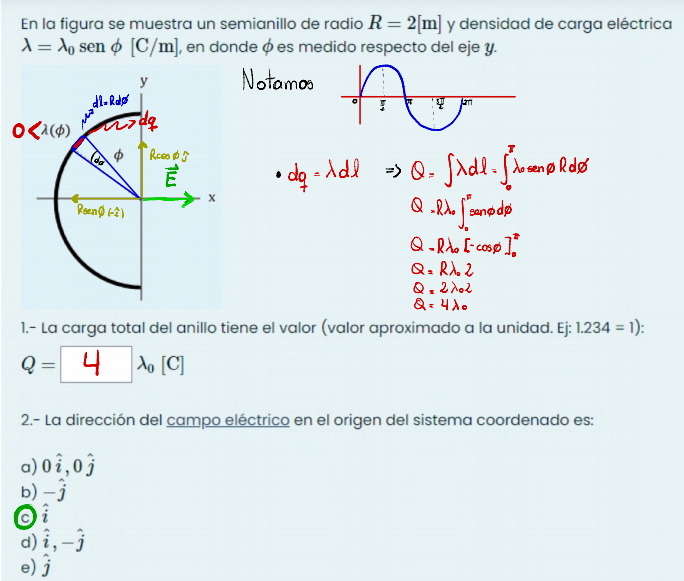 En la figura se muestra un semianillo de radio R = 2[m] y densidad de carga eléctrica
λ = λ₀ sen ϕ [C/m], en donde ϕ es medido respecto del eje y.
y
dl=Rdø
dq
0<λ(ϕ)
dø
ϕ
Rcosø ĵ
E⃗
x
Rsenø(-î)
Notamos
0 π/2 π 3π/2 2π
• dq = λdl => Q = ∫λdl = ∫₀^π λ₀ senø Rdø
Q = Rλ₀ ∫₀^π senødø
Q = Rλ₀ [-cosø]₀^π
Q = Rλ₀ 2
Q = 2λ₀2
Q = 4λ₀
1.- La carga total del anillo tiene el valor (valor aproximado a la unidad. Ej: 1.234 = 1):
Q = 4 λ₀ [C]
2.- La dirección del campo eléctrico en el origen del sistema coordenado es:
a) 0 î, 0 ĵ
b) −ĵ
c) î
d) î, −ĵ
e) ĵ